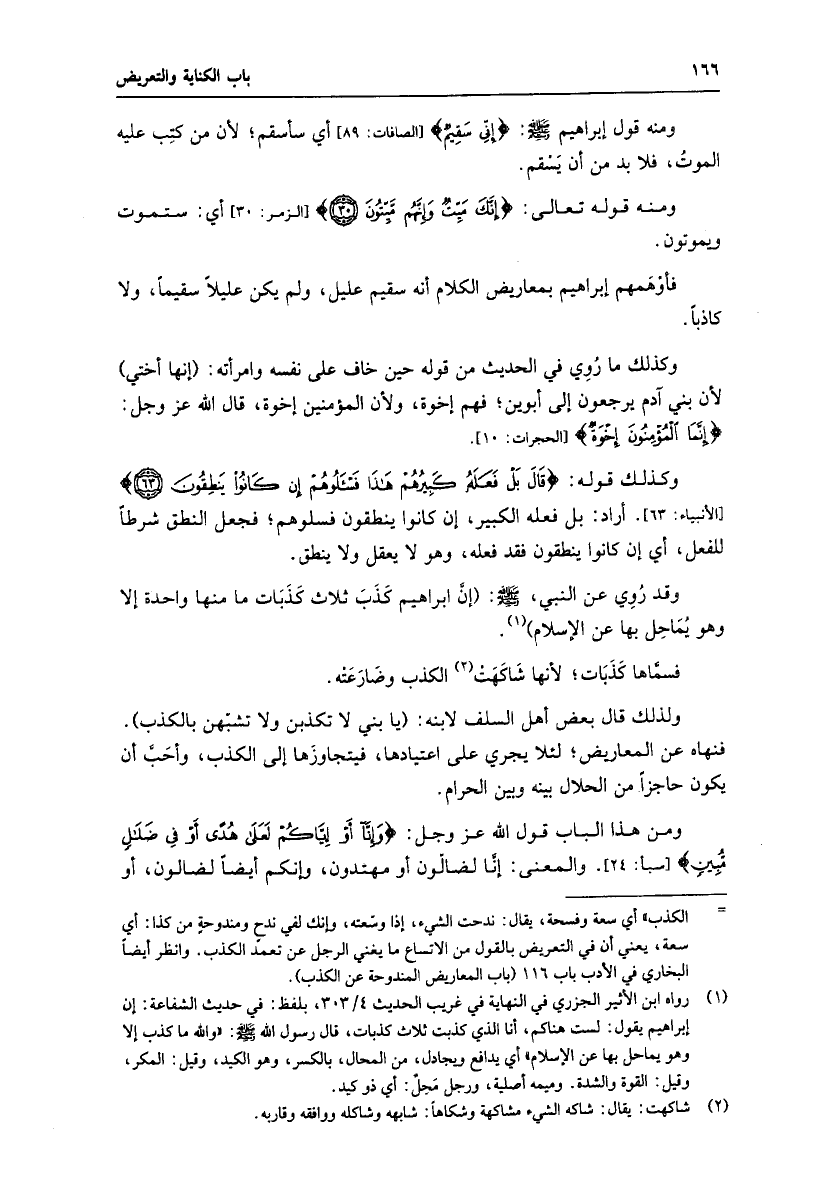 ١٦٦
باب الكناية والتعريض
ومنه قول إبراهيم ﷺ: ﴿إِنِّي سَقِيمٌ﴾ [الصافات: ٨٩] أي سأسقم؛ لأن من كتِب عليه
الموتُ، فلا بد من أن يَسْقم.
ومنه قوله تعالى: ﴿إِنَّكَ مَيِّتٌ وَإِنَّهُم مَّيِّتُونَ ﴿٣٠﴾﴾ [الزمر: ٣٠] أي: ستموت
ويموتون.
فأوْهَمهم إبراهيم بمعاريض الكلام أنه سقيم عليل، ولم يكن عليلاً سقيماً، ولا
كاذباً.
وكذلك ما رُوِي في الحديث من قوله حين خاف على نفسه وامرأته: (إنها أختي)
لأن بني آدم يرجعون إلى أبوين؛ فهم إخوة، ولأن المؤمنين إخوة، قال الله عز وجل:
﴿إِنَّمَا الْمُؤْمِنُونَ إِخْوَةٌ﴾ [الحجرات: ١٠].
وكذلك قوله: ﴿قَالَ بَلْ فَعَلَهُ كَبِيرُهُمْ هَٰذَا فَسْئَلُوهُمْ إِن كَانُوا يَنطِقُونَ ﴿٦٣﴾﴾
[الأنبياء: ٦٣]. أراد: بل فعله الكبير، إن كانوا ينطقون فسلوهم؛ فجعل النطق شرطاً
للفعل، أي إن كانوا ينطقون فقد فعله، وهو لا يعقل ولا ينطق.
وقد رُوِي عن النبي، ﷺ: (إنَّ ابراهيم كَذَبَ ثلاث كَذَبَات ما منها واحدة إلا
وهو يُمَاحِل بها عن الإسلام)(١).
فسمَّاها كَذَبَات؛ لأنها شَاكَهَتْ(٢) الكذب وضَارَعَتْه.
ولذلك قال بعض أهل السلف لابنه: (يا بني لا تكذبن ولا تشبّهن بالكذب).
فنهاه عن المعاريض؛ لئلا يجري على اعتيادها، فيتجاوزَها إلى الكذب، وأحَبَّ أن
يكون حاجزاً من الحلال بينه وبين الحرام.
ومن هذا الباب قول الله عز وجل: ﴿وَإِنَّا أَوْ إِيَّاكُمْ لَعَلَىٰ هُدًى أَوْ فِي ضَلَالٍ
مُّبِينٍ﴾ [سبا: ٢٤]. والمعنى: إنَّا لضالّون أو مهتدون، وإنكم أيضاً لضالون، أو
= الكذب» أي سعة وفسحة، يقال: ندحت الشيء، إذا وسّعته، وإنك لفي ندحٍ ومندوحةٍ من كذا: أي
سعة، يعني أن في التعريض بالقول من الاتساع ما يغني الرجل عن تعمّد الكذب. وانظر أيضاً
البخاري في الأدب باب ١١٦ (باب المعاريض المندوحة عن الكذب).
(١) رواه ابن الأثير الجزري في النهاية في غريب الحديث ٣٠٣/٤، بلفظ: في حديث الشفاعة: إن
إبراهيم يقول: لست هناكم، أنا الذي كذبت ثلاث كذبات، قال رسول الله ﷺ: «والله ما كذب إلا
وهو يماحل بها عن الإسلام» أي يدافع ويجادل، من المحال، بالكسر، وهو الكيد، وقيل: المكر،
وقيل: القوة والشدة. وميمه أصلية، ورجل مَحِلٌ: أي ذو كيد.
(٢) شاكهت: يقال: شاكه الشيء مشاكهة وشكاهاً: شابهه وشاكله ووافقه وقاربه.